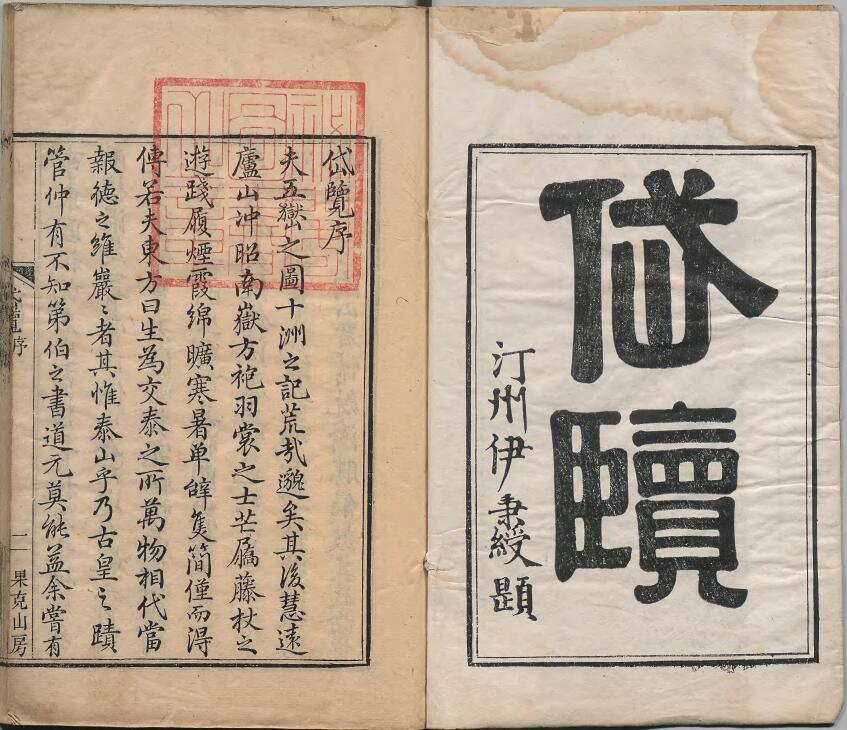 岱覽
汀州伊秉綬題
岱覽序
夫五嶽之圖十洲之記荒哉邈矣其後慧遠
廬山沖昭南嶽方袍羽裳之士芒屩藤杖之
遊踐履煙霞綿曠寒暑单辭隻簡僅而淂
傳若夫東方曰生為交泰之所萬物相代當
報德之維巖〻者其惟泰山乎乃古皇之蹟
管仲有不知第伯之書道元莫能益余嘗有
岱覽序 二 果克山房